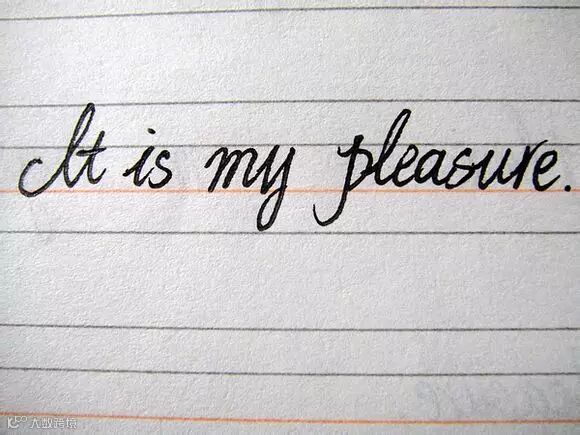 It is my pleasure.
大数跨境